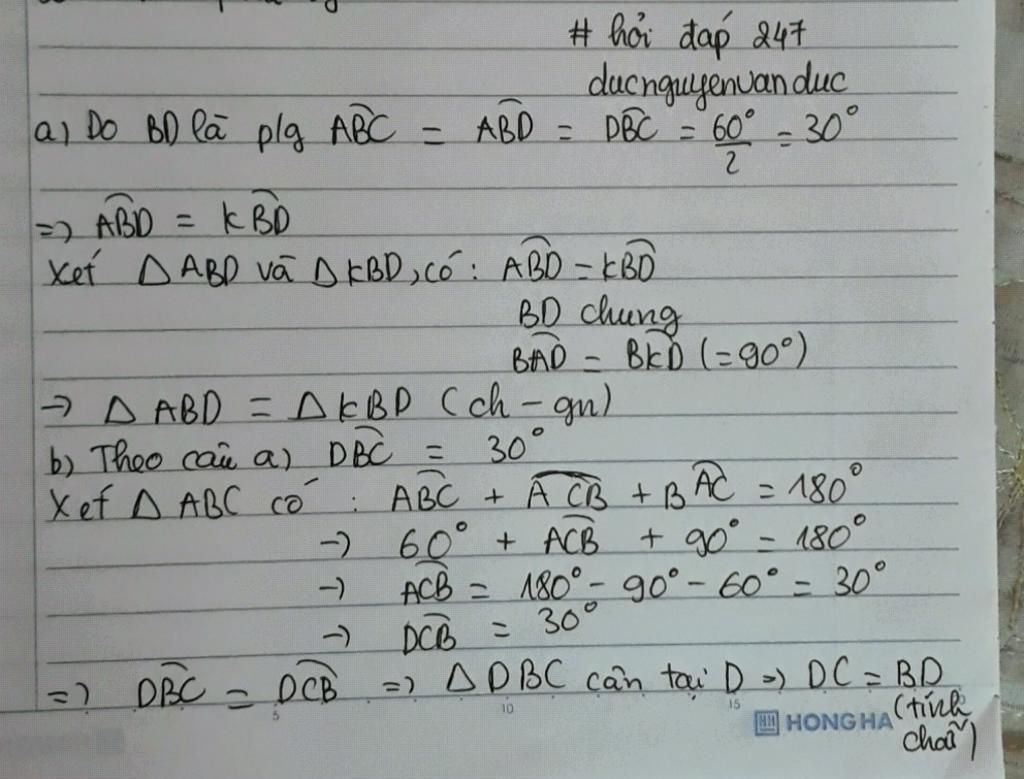 # hỏi đáp 247
ducnguyenvanduc
a) Do BD là p/g ABC = ABD = DBC = 60°/2 = 30°
=> ABD = KBD
Xét △ ABD và △ KBD, có: ABD = KBD
BD chung
BAD = BKD (= 90°)
→ △ ABD = △ KBD (ch - gn)
b) Theo câu a) DBC = 30°
Xét △ ABC có : ABC + ACB + BAC = 180°
→ 60° + ACB + 90° = 180°
→ ACB = 180° - 90° - 60° = 30°
→ DCB = 30°
=> DBC = DCB => △ DBC cân tại D => DC = BD
(tính chất)
5 10 15
HONG HA